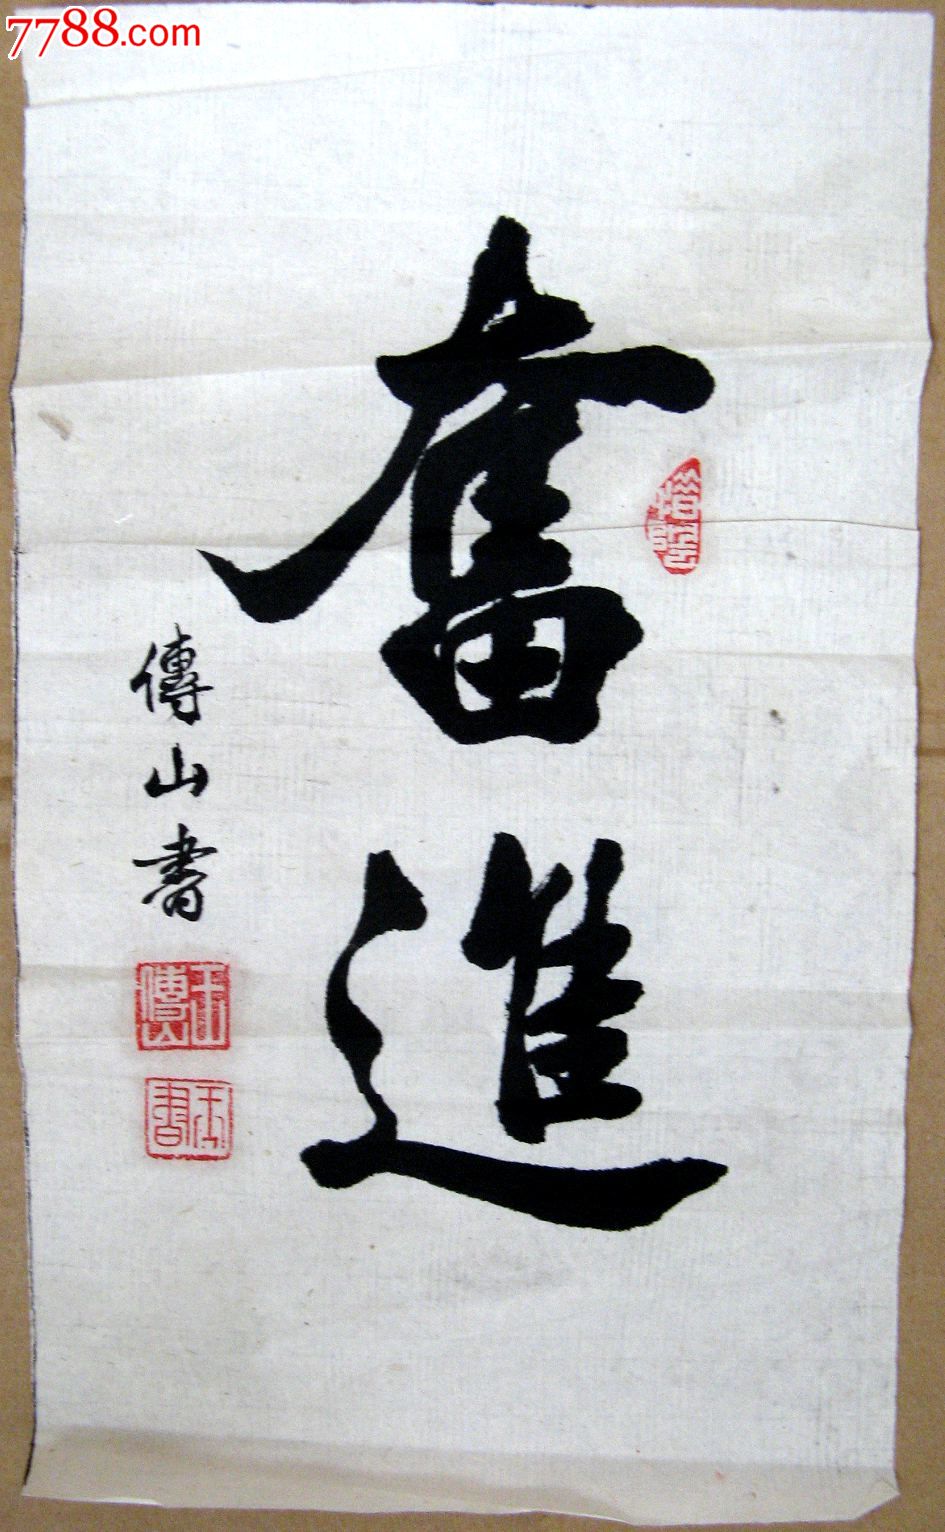 7788.com
奮進
傳山書